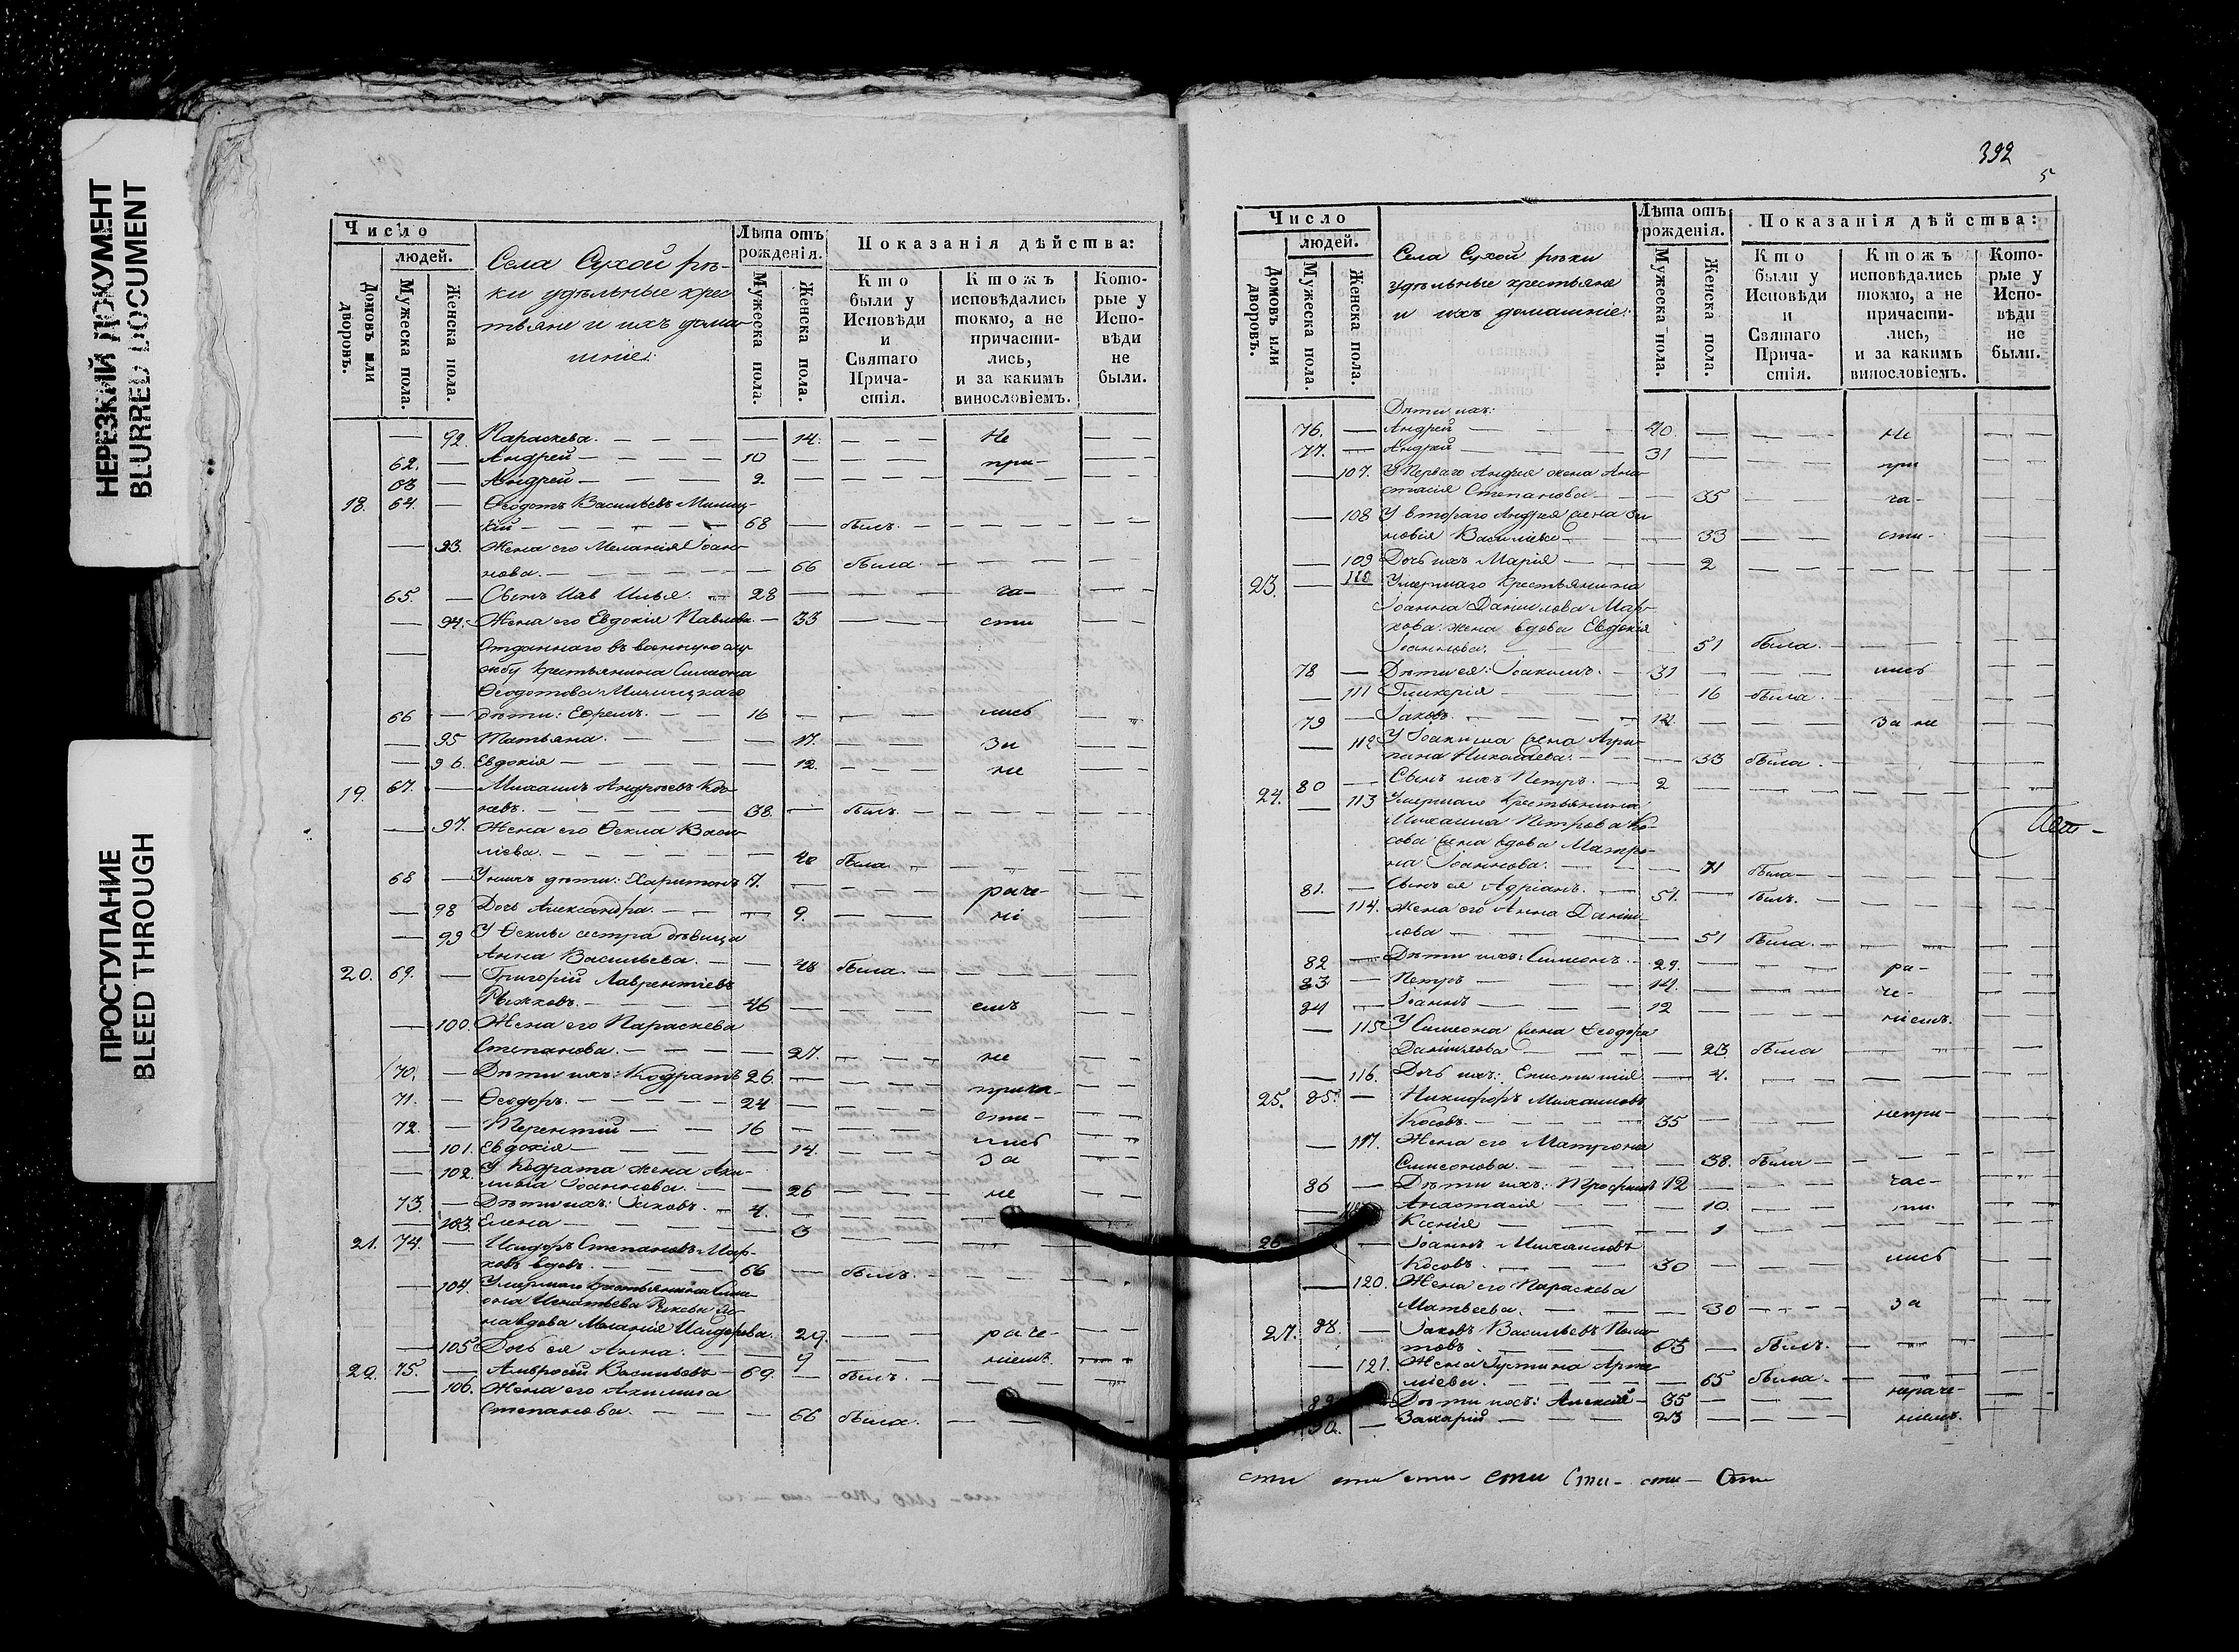 НЕРЕЗКИЙ ДОКУМЕНТ
BLURRED DOCUMENT
ПРОСТУПАНИЕ
BLEED THROUGH
Число
людей.
Домовъ или дворовъ.
Мужеска пола.
Женска пола.
Села Сухой рѣ-
ки удѣльные крес-
тьяне и ихъ дома-
шніе:
Лѣта отъ рожденія.
Мужеска пола.
Женска пола.
Показанія дѣйства:
Кто были у Исповѣди и Святаго Прича-стія.
Ктожъ исповѣдались токмо, а не причасти-лись, и за какимъ винословіемъ.
Кото-рые у Испо-вѣди не были.
— 92. Параскева. — — — — 14. — — — Не — —
62. — Андрей — — — — 10 — — — — при- — —
63 — Андрей — — — — 9. — — — — — —
18. 64. — Ѳеодотъ Васильевъ
68 — былъ. — — — —
— 93. Жена его Меланія Іоан-
нова. — — — — 66 была. — — — —
65. — Сынъ Илья. — 28 — — — — ча- — —
— 94. Жена его Евдокія Павлова. — 33 — — сти — —
— Отданнаго въ военную слу-
жбу крестьянина Симеона
Ѳеодотова
66 — дѣти: Ефремъ. — — 16 — — — лись — —
— 95 Татьяна. — — 17. — — За — —
— 96. Евдокія — — — — 12. — — не — —
19. 67. — Михаилъ Андреевъ
38. — былъ. — — — —
— 97. Жена его Ѳекла Васи-
лiева. — — — — 40 была — — — —
68 — У нихъ дѣти: Харитонъ 17. — — — раче- — —
— 98 Дочь Александра. — — — 9. — — ні — —
— 99 У Ѳеклы сестра дѣвица
Анна Васильева. — — 48 была. — — — —
20. 69. — Григорій Лаврентіевъ
Рыжковъ. — — — — 46 — — — емъ — —
— 100 Жена его Параскева
Степанова. — — — — 27. — — не — —
70. — Дѣти ихъ: Кодратъ 26. — — — прича- — —
71. — Ѳеодоръ. — — — — 24 — — — — сти- — —
72. — Терентій — — 16 — — — — лись — —
— 101. Евдокія — — — — 14. — — — за — —
— 102. У Кодрата жена Аки-
лина Іоаннова. — — 26 — — — не — —
73. — Дѣти ихъ: Іаковъ. — 4. — — — —
— 103. Елена — — — — 3 — — — —
21. 74. — Исидоръ Степановъ Мар-
ковъ вдовъ. — — — — 66 — былъ. — — — —
— 104. Умершаго крестьянина Симе-
она Игнатьева
вдова Меланія Исидорова. 29. — — раче- — —
— 105 Дочь ея Анна: — — 9 — — ніемъ. — —
22. 75. — Амвросій Васильевъ — 69. — былъ. — — — —
— 106. Жена его Акилина
Степанова. — — — — 66 была. — — — —
392
5
Число
людей.
Домовъ или дворовъ.
Мужеска пола.
Женска пола.
Села Сухой рѣки
удѣльные крестьяне
и ихъ домашніе:
Лѣта отъ рожденія.
Мужеска пола.
Женска пола.
Показанія дѣйства:
Кто были у Исповѣди и Святаго Прича-стія.
Ктожъ исповѣдались токмо, а не причасти-лись, и за какимъ винословіемъ.
Кото-рые у Испо-вѣди не были.
Дѣти ихъ:
76. — Андрей — — — 40. — — — Не — —
77. — Андрей — — — 31 — — — при — —
— 107. У Перваго Андрея жена Ана-
стасія Степанова — — 35 — — ча- — —
— 108 У втораго Андрея жена Зи-
новія Васильева — — 33 — — сти- — —
— 109 Дочь ихъ Марія — — — 2 — — — —
23. — 110 Умершаго Крестьянина
Іоанна Данілова Мар-
кова жена вдова Евдокія
Іоаннова. — — — — 51 была. — — — —
78 — Дѣти ея: Іоакимъ. — 31 — — — лись — —
— 111 Гликерія — — — — 16 была. — — — —
79 — Іаковъ. — — — — 14. — — — За не — —
— 112 У Іоакима жена Агри-
пина Николаева. — — — 33 была. — — — —
80 — Сынъ ихъ Петръ. — — 2 — — — —
24. — 113 Умершаго Крестьянина
Михаила Петрова Ко-
сова жена вдова Матро-
на Іоаннова. — — — 71 была — — — —
81. — Сынъ ея Адріанъ. — — 51. — былъ. — — — —
— 114. Жена его Анна Дані-
лова — — — — 51 была. — — — —
82 — Дѣти ихъ: Симеонъ. — 29. — — — ра- — —
83 — Петръ — — — 14. — — — че- — —
84 — Іоаннъ — — — 12 — — — ніемъ. — —
— 115 У Симеона жена Ѳеодора
Данілова — — — — 23. была — — — —
— 116. Дочь ихъ: Епистимія. — — 4. — — — —
25. 85. — Никифоръ Михаиловъ
Косовъ. — — — — 35 — — — непри- — —
— 117. Жена его Матрона
Симеонова. — — — — 38. была — — — —
86 — Дѣти ихъ: Трофимъ 12 — — — час- — —
Анастасія — — — 10. — — ти- — —
Ксенія — — — — 1 — — — —
26 — Іоаннъ Михаиловъ
Косовъ. — — — — 30 — — — лись — —
— 120. Жена его Параскева
Матвѣева. — — — — 30 — — — за — —
27. 88. — Іаковъ Васильевъ
63 — былъ. — — — —
— 121. Жена Іустина Арте-
міева. — — — — 65 была. — — — —
89 Дѣти ихъ: Алексій — 35 — — — нераче- — —
90. — Захарій — — — 23 — — — ніемъ. — —
сти сти сти- сти Сти- сти- Сти